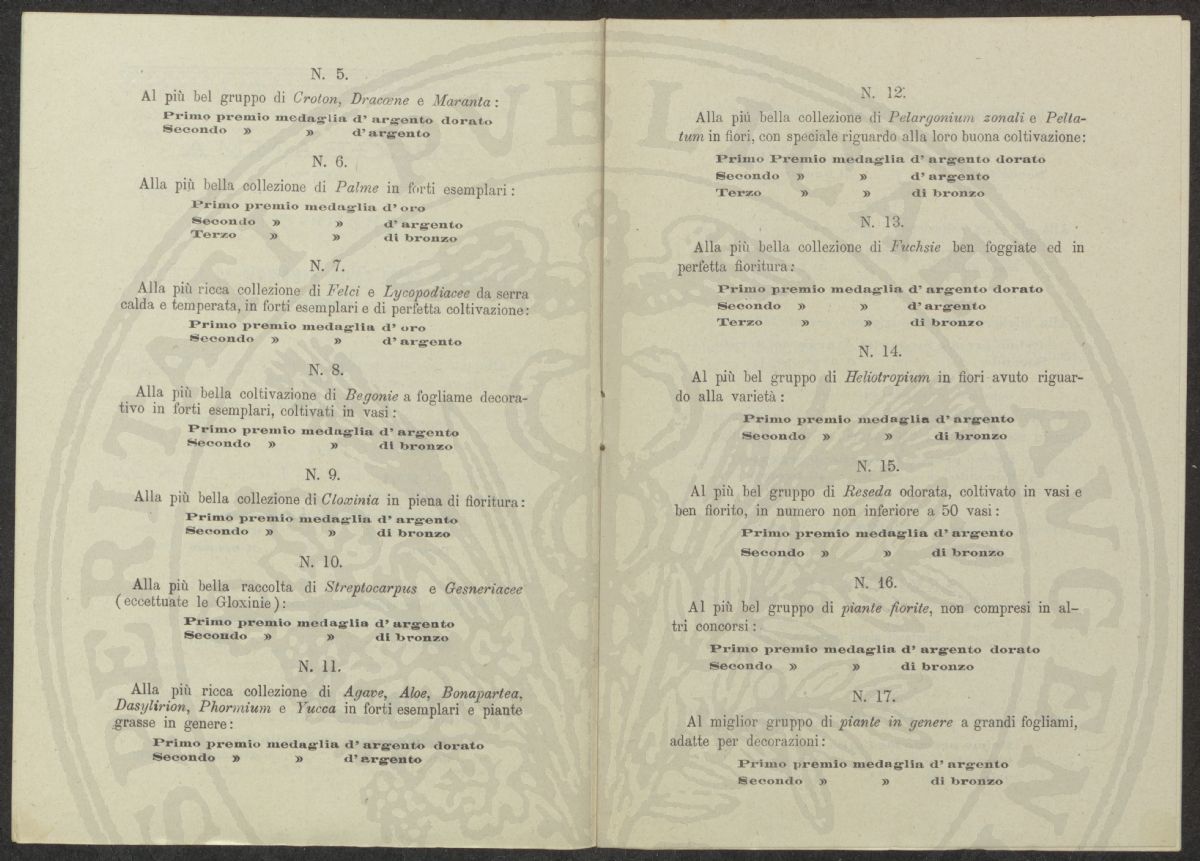 N. 5.
Al più bel gruppo di Croton, Dracœne e Maranta :
Primo premio medaglia d' argento dorato
Secondo » » d' argento
N. 6.
Alla più bella collezione di Palme in forti esemplari :
Primo premio medaglia d' oro
Secondo » » d' argento
Terzo » » di bronzo
N. 7.
Alla più ricca collezione di Felci e Lycopodiacee da serra
calda e temperata, in forti esemplari e di perfetta coltivazione:
Primo premio medaglia d' oro
Secondo » » d' argento
N. 8.
Alla più bella coltivazione di Begonie a fogliame decora-
tivo in forti esemplari, coltivati in vasi :
Primo premio medaglia d' argento
Secondo » » di bronzo
N. 9.
Alla più bella collezione di Cloxinia in piena di fioritura :
Primo premio medaglia d' argento
Secondo » » di bronzo
N. 10.
Alla più bella raccolta di Streptocarpus e Gesneriacee
(eccettuate le Gloxinie) :
Primo premio medaglia d' argento
Secondo » » di bronzo
N. 11.
Alla più ricca collezione di Agave, Aloe, Bonapartea,
Dasylirion, Phormium e Yucca in forti esemplari e piante
grasse in genere :
Primo premio medaglia d' argento dorato
Secondo » » d' argento
N. 12.
Alla più bella collezione di Pelargonium zonali e Pelta-
tum in fiori, con speciale riguardo alla loro buona coltivazione:
Primo Premio medaglia d' argento dorato
Secondo » » d' argento
Terzo » » di bronzo
N. 13.
Alla più bella collezione di Fuchsie ben foggiate ed in
perfetta fioritura :
Primo premio medaglia d' argento dorato
Secondo » » d' argento
Terzo » » di bronzo
N. 14.
Al più bel gruppo di Heliotropium in fiori avuto riguar-
do alla varietà :
Primo premio medaglia d' argento
Secondo » » di bronzo
N. 15.
Al più bel gruppo di Reseda odorata, coltivato in vasi e
ben fiorito, in numero non inferiore a 50 vasi :
Primo premio medaglia d' argento
Secondo » » di bronzo
N. 16.
Al più bel gruppo di piante fiorite, non compresi in al-
tri concorsi :
Primo premio medaglia d' argento dorato
Secondo » » di bronzo
N. 17.
Al miglior gruppo di piante in genere a grandi fogliami,
adatte per decorazioni :
Primo premio medaglia d' argento
Secondo » » di bronzo